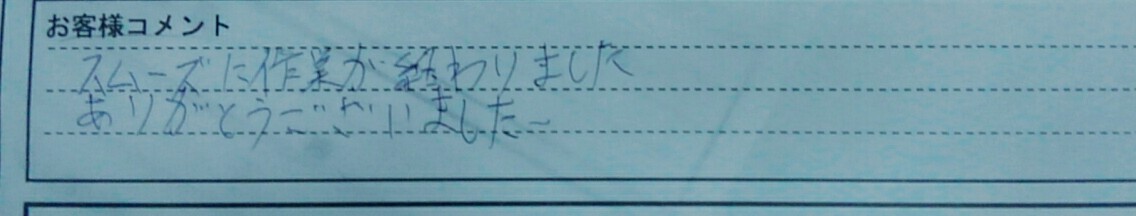 お客様コメント
スムーズに作業が終わりました
ありがとうございました~